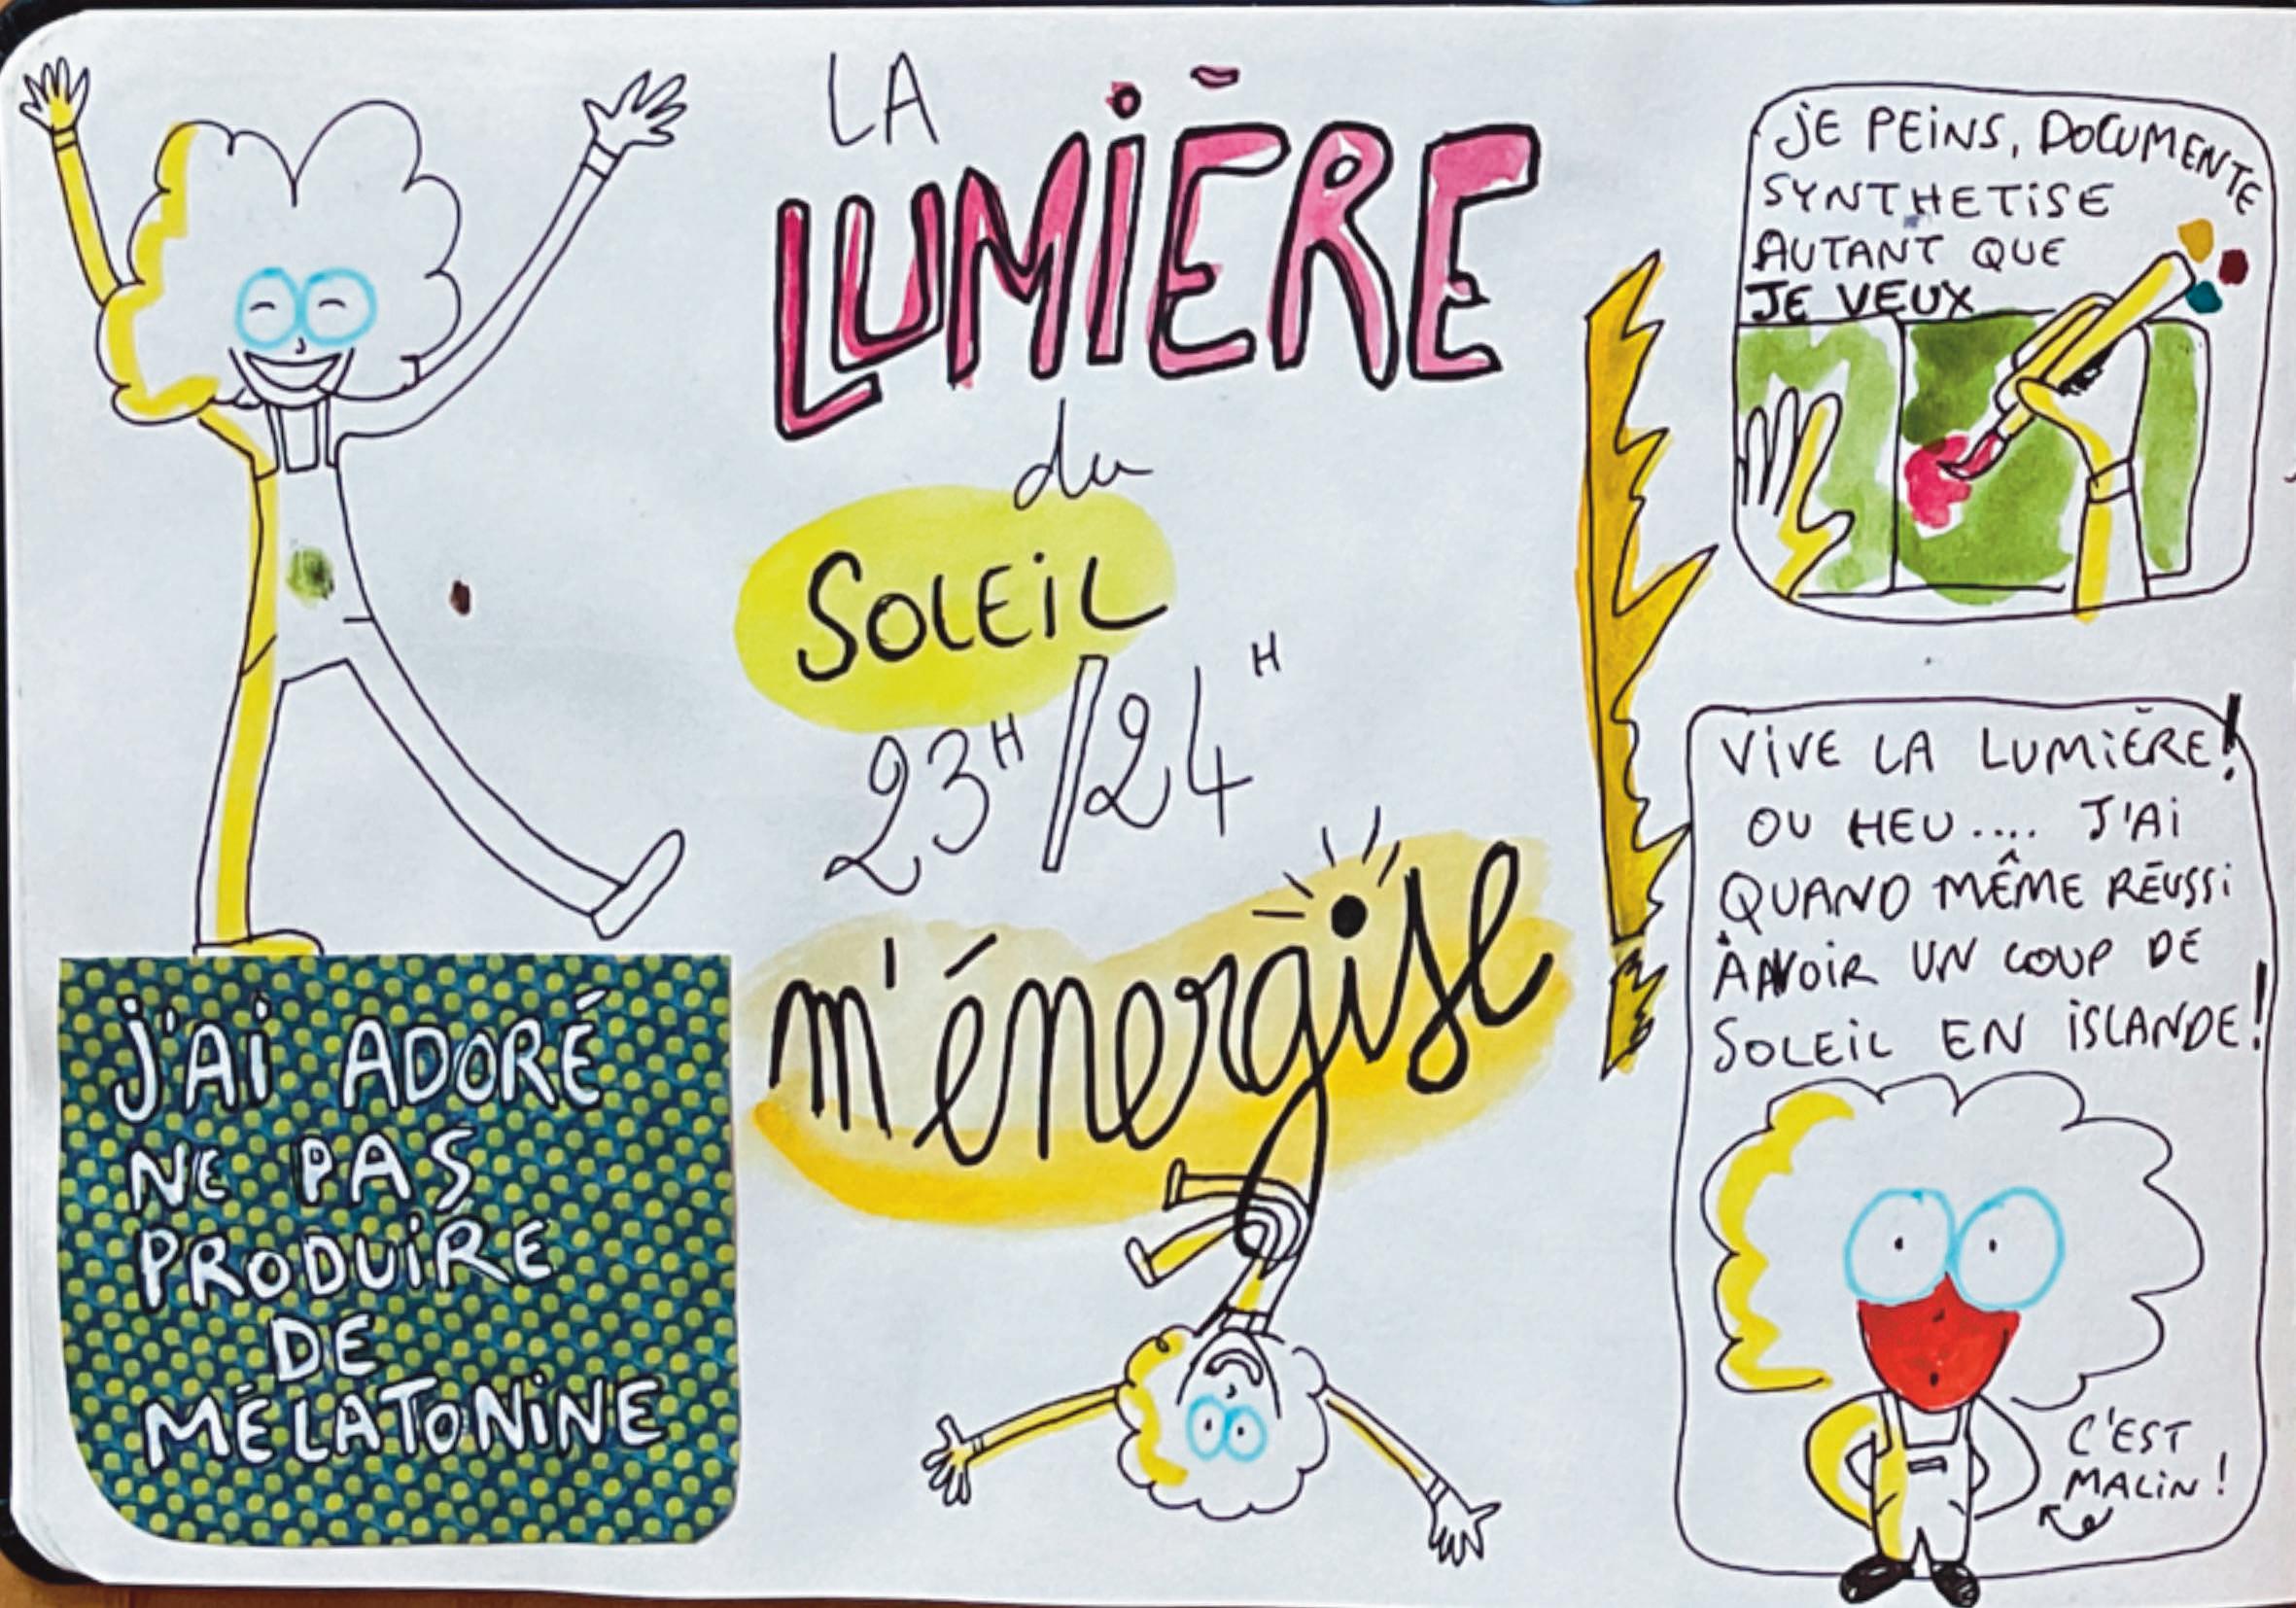 LA
LUMIÈRE
du
SOLEIL
23H/24H
m'énergise
J'AI ADORÉ
NE PAS
PRODUIRE
DE
MÉLATONINE
JE PEINS, DOCUMENTE
SYNTHETISE
AUTANT QUE
JE VEUX
VIVE LA LUMIÈRE!
OU HEU.... J'AI
QUAND MÊME RÉUSSI
À AVOIR UN COUP DE
SOLEIL EN ISLANDE!
C'EST
MALIN!